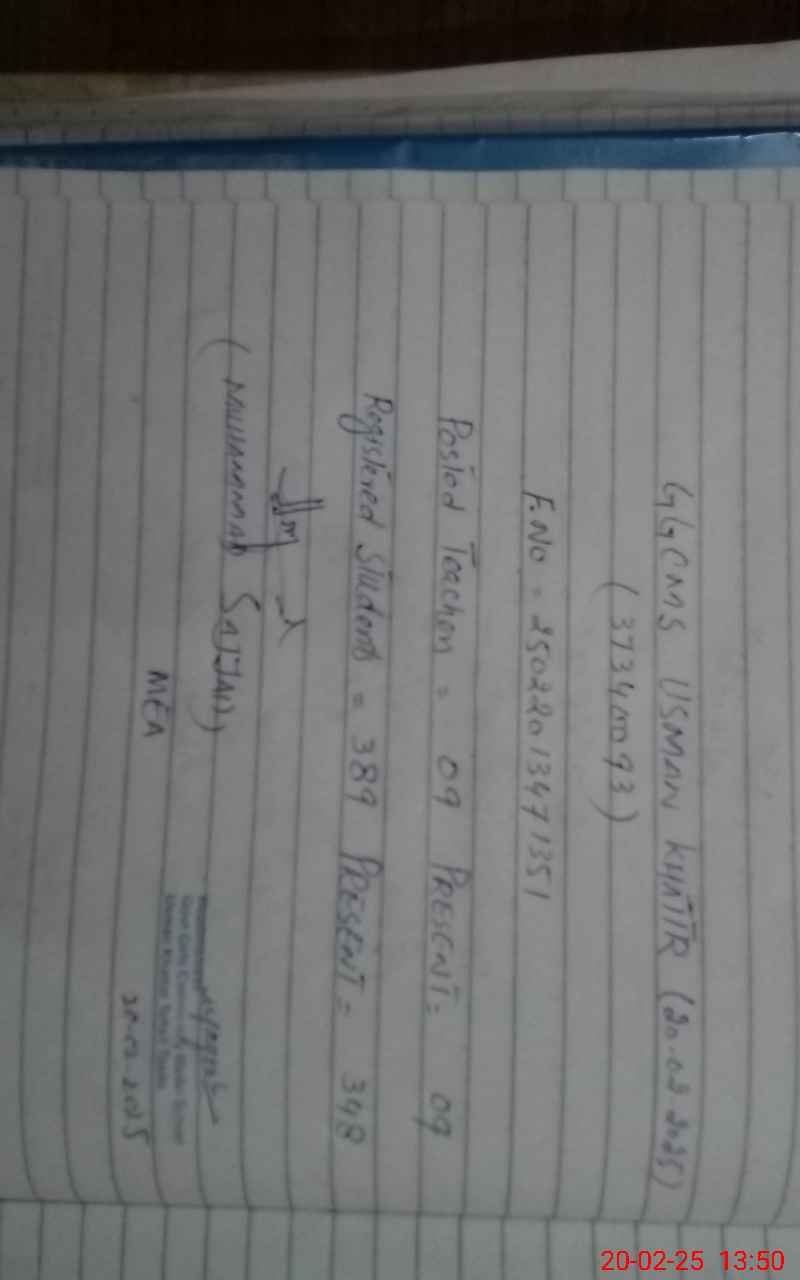 GGCMS USMAN KHATTR (20-02-2025)
(37340093)
F.No = 25022013471351
Posted Teachers = 09 PRESENT = 09
Registered Students = 389 PRESENT = 348
(MUHAMMAD SAJJAD)
MEA
Govt Girls Community Model School
20-02-2025
20-02-25 13:50